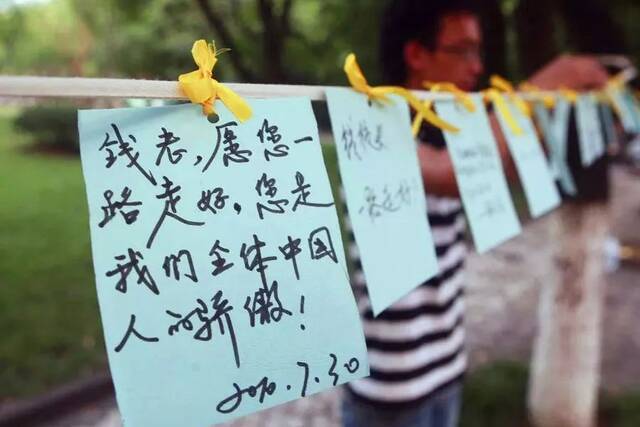 钱老，愿您一
路走好，您是
我们全体中国
人的骄傲！
2010.7.30
钱校长
走好！